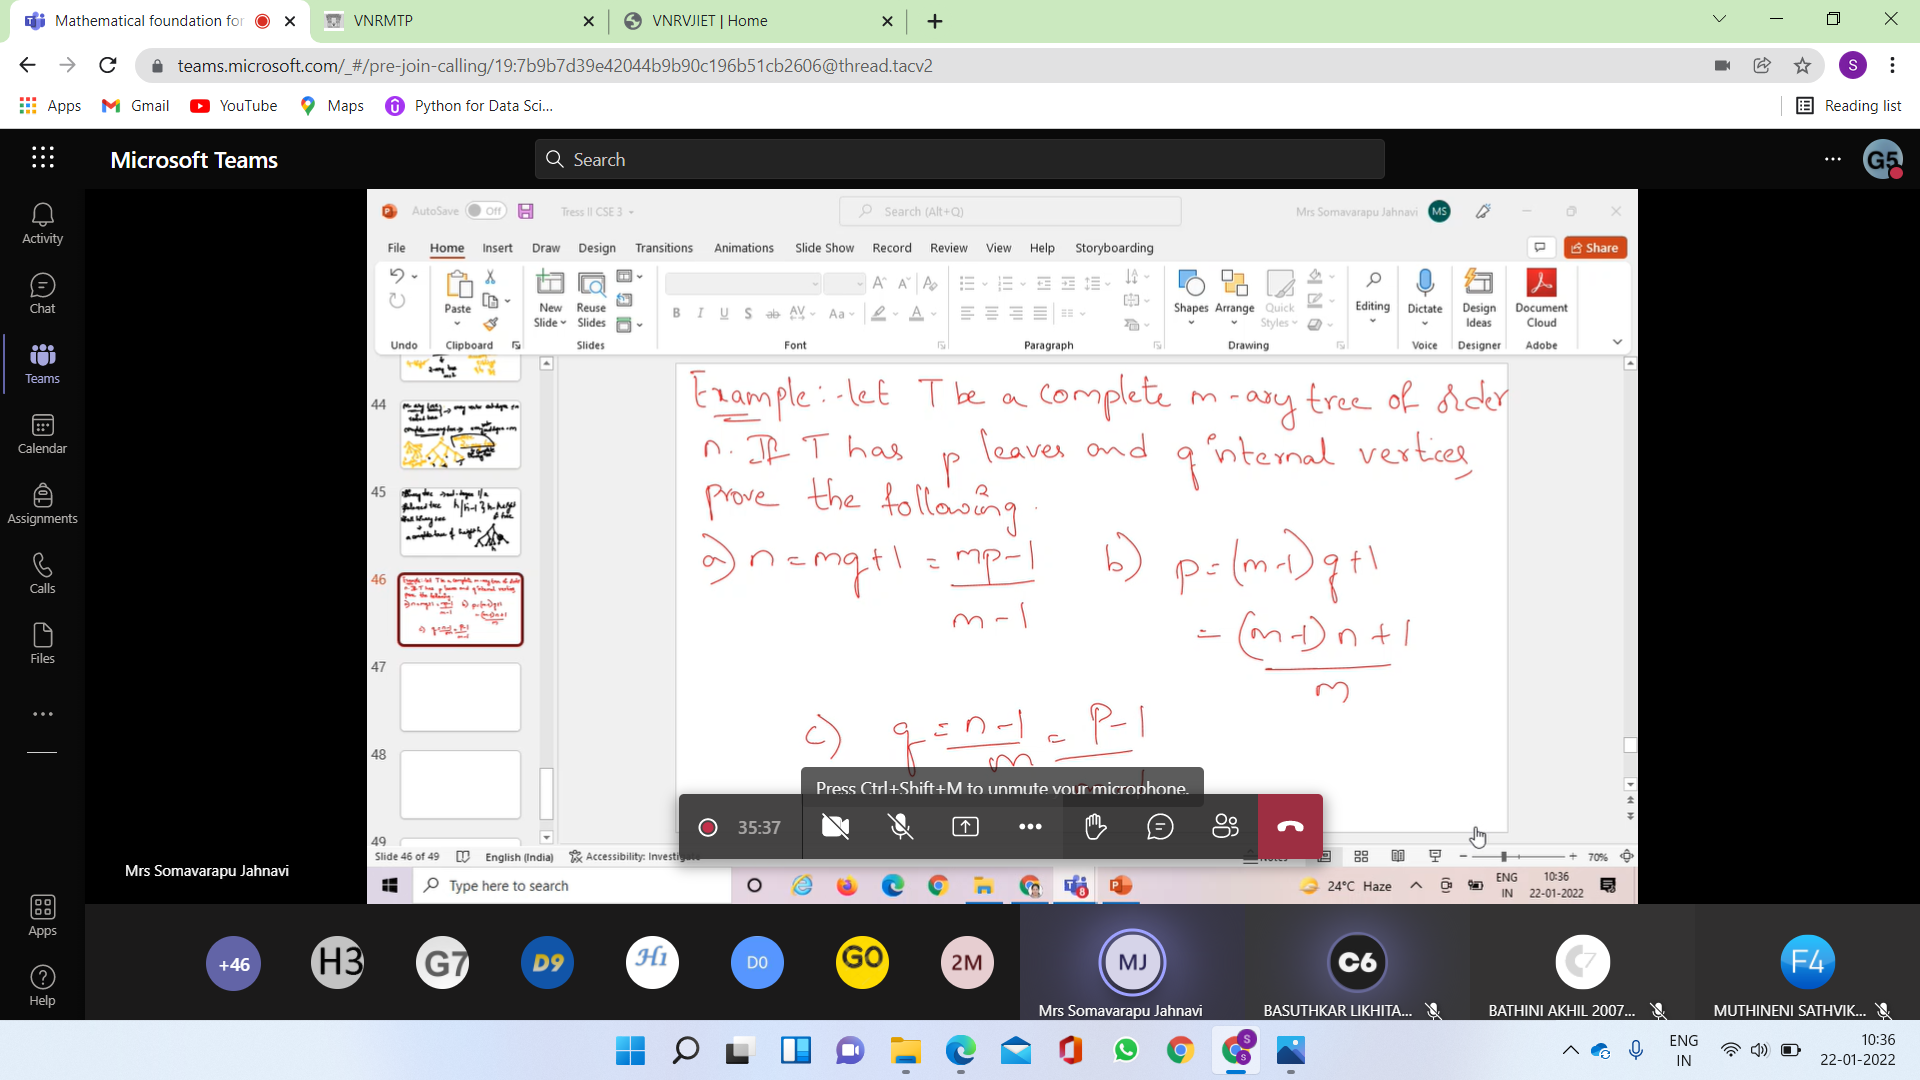 Mathematical foundation for
VNRMTP
VNRVJIET | Home
teams.microsoft.com/_#/pre-join-calling/19:7b9b7d39e42044b9b90c196b51cb2606@thread.tacv2
S
Apps
Gmail
YouTube
Maps
Python for Data Sci...
Reading list
Microsoft Teams
Search
G5
Activity
Chat
Teams
Calendar
Assignments
Calls
Files
Apps
Help
AutoSave
Off
Tress II CSE 3
Search (Alt+Q)
Mrs Somavarapu Jahnavi
MS
File Home Insert Draw Design Transitions Animations Slide Show Record Review View Help Storyboarding
Share
Paste
New Slide
Reuse Slides
Shapes
Arrange
Quick Styles
Editing
Dictate
Design Ideas
Document Cloud
Undo
Clipboard
Slides
Font
Paragraph
Drawing
Voice
Designer
Adobe
44
45
46
47
48
49
Example:- let T be a complete m-ary tree of order
n. If T has p leaves and q internal vertices
prove the following.
a) n = mq+1 = mp-1
m-1
b) p = (m-1)q+1
= (m-1)n+1
m
c) q = n-1 = p-1
m
Press Ctrl+Shift+M to unmute your microphone.
35:37
Slide 46 of 49
English (India)
Accessibility: Investigate
Notes
70%
Type here to search
24°C Haze
ENG
IN
10:36
22-01-2022
Mrs Somavarapu Jahnavi
+46
H3
G7
D9
H1
D0
GO
2M
MJ
Mrs Somavarapu Jahnavi
C6
BASUTHKAR LIKHITA...
C7
BATHINI AKHIL 2007...
F4
MUTHINENI SATHVIK...
ENG
IN
10:36
22-01-2022